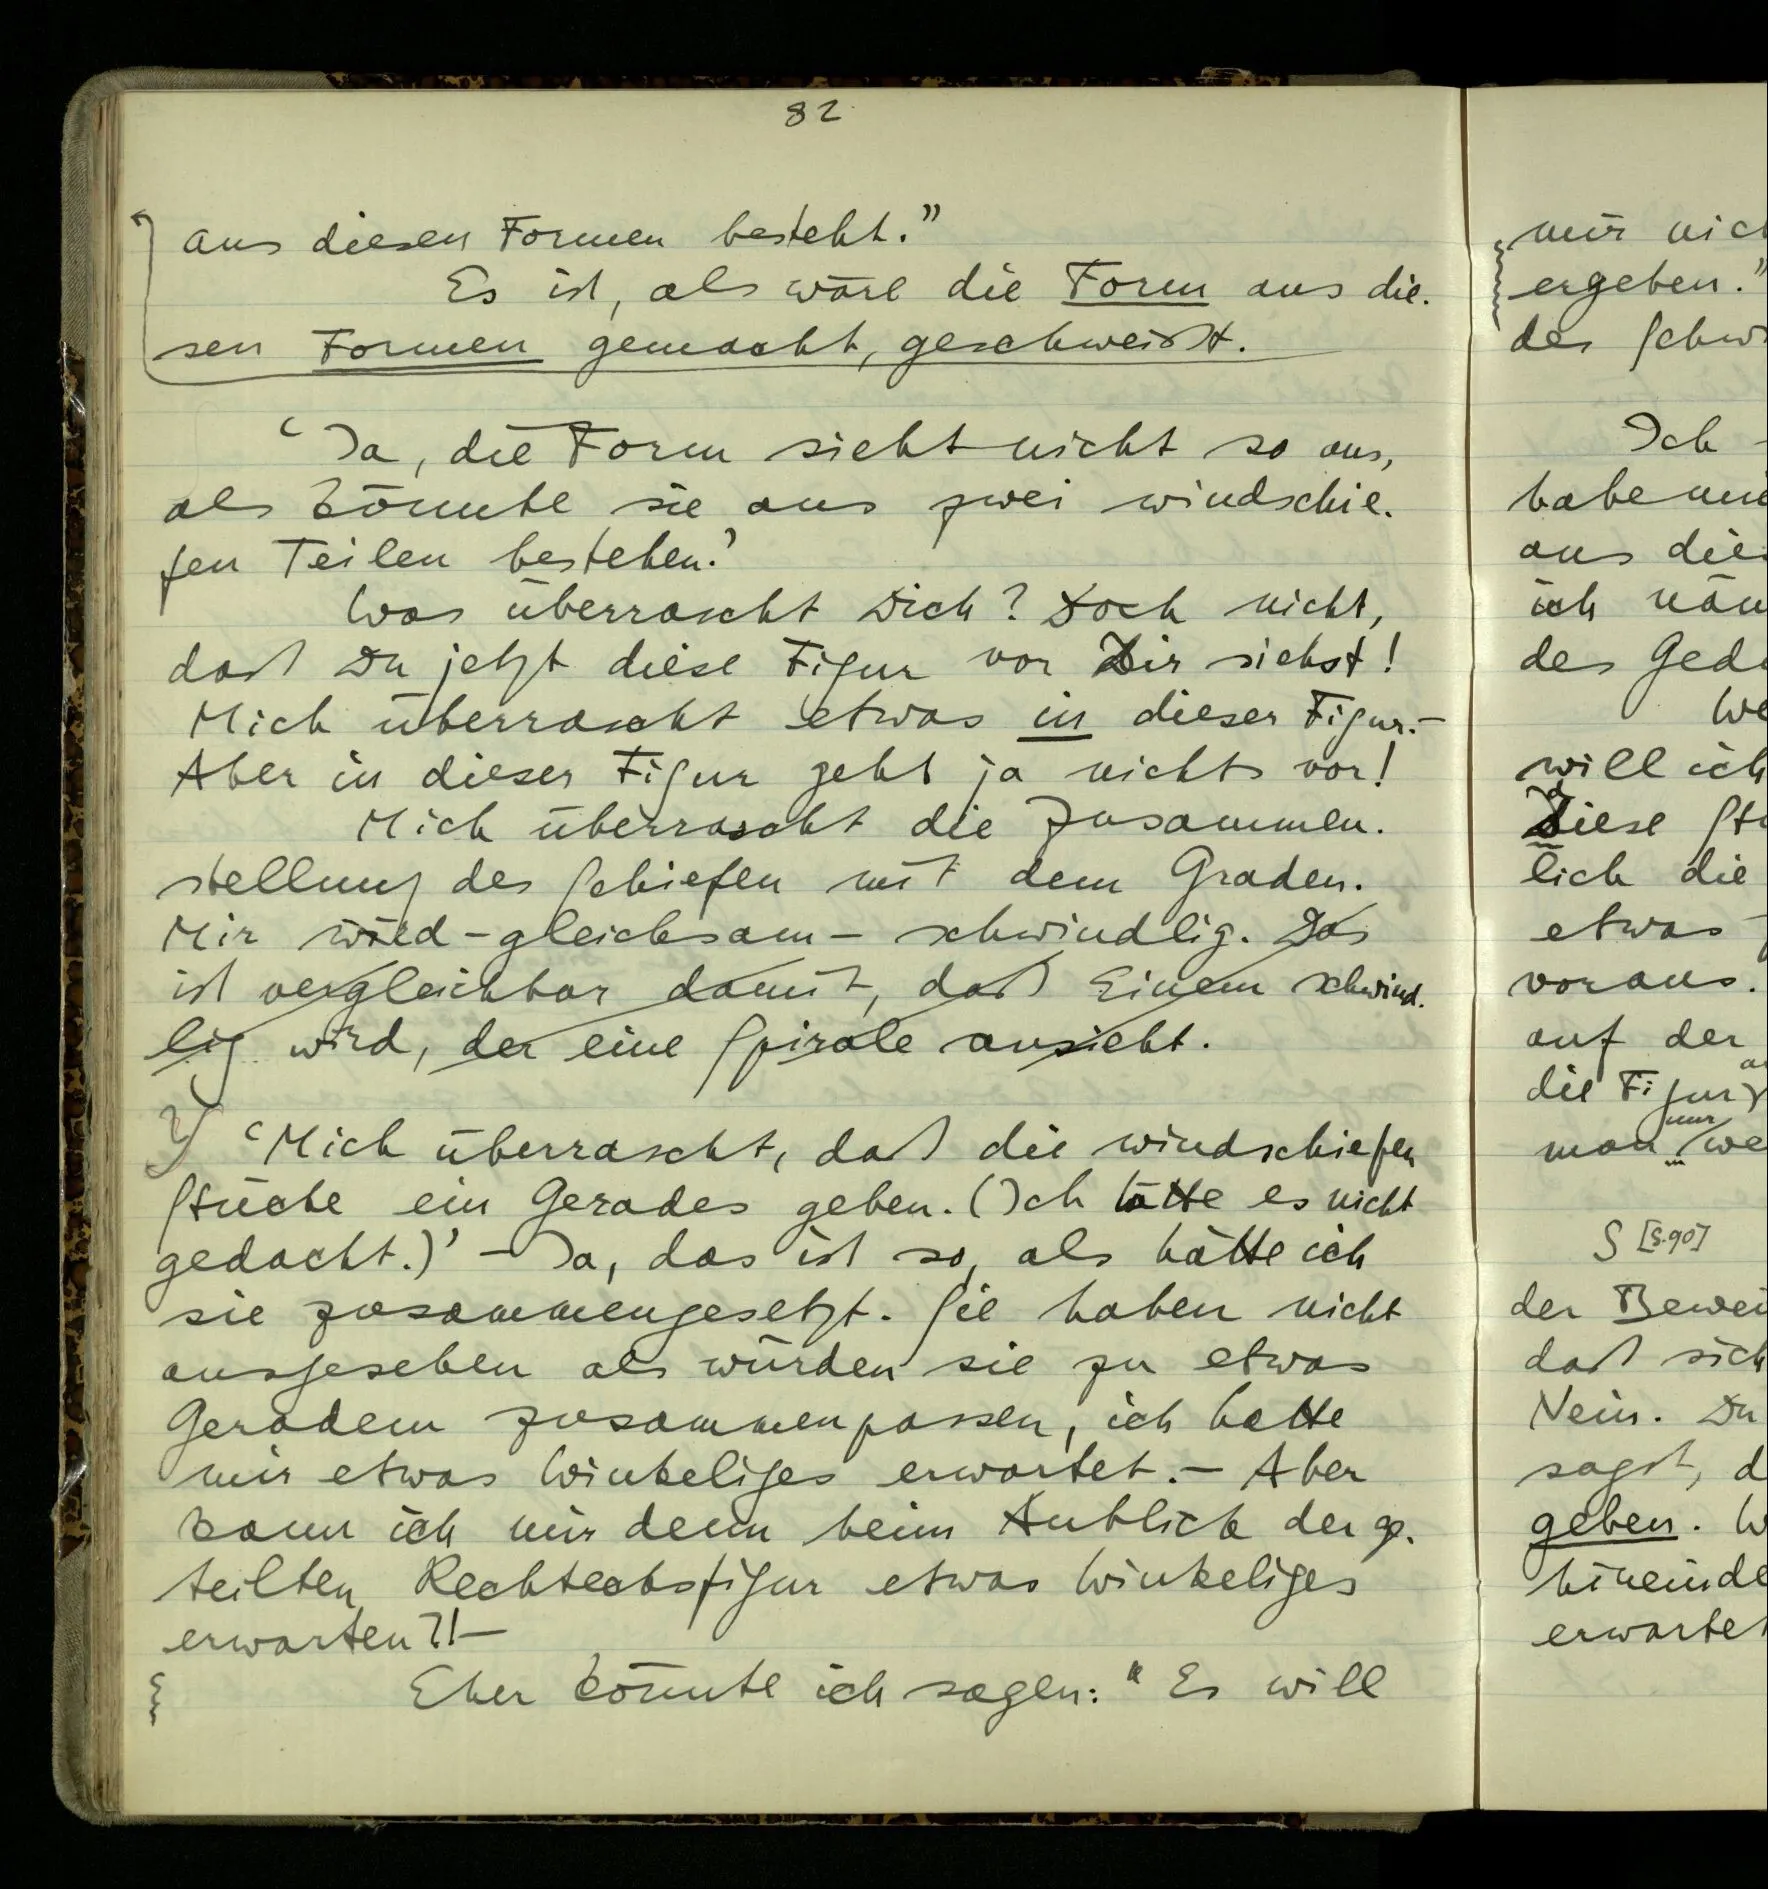 82
aus diesen Formen besteht.”
Es ist, als wäre die Form aus die-
sen Formen gemacht, geschweißt.
‘Ja, die Form sieht nicht so aus,
als könnte sie aus zwei windschie-
fen Teilen bestehen.’
Was überrascht Dich? Doch nicht,
daß Du jetzt diese Figur vor Dir siehst!
Mich überrascht etwas in dieser Figur.–
Aber in dieser Figur geht ja nichts vor!
Mich überrascht die Zusammen-
stellung des Schiefen mit dem Graden.
Mir wird – gleichsam – schwindlig. Das
ist vergleichbar damit, daß Einem schwind-
lig wird, der eine Spirale ansieht.
‘Mich überrascht, daß die windschiefen
Stücke ein Gerades geben. (Ich hätte es nicht
gedacht.)’ – Ja, das ist so, als hätte ich
sie zusammengesetzt. Sie haben nicht
ausgesehen als würden sie zu etwas
Geradem zusammenpassen, ich hatte
mir etwas Winkeliges erwartet. – Aber
kann ich mir denn beim Anblick der ge-
teilten Rechtecksfigur etwas Winkeliges
erwarten?! –
Eher könnte ich sagen: “Es will
mir nic
ergeben.”
des Schw
Ich
habe
aus die
ich
des Ged
We
will ich
Diese
lich die
etwas
voraus.
auf der
die Figur
nur
man we
S [S.90]
der Bewei
daß sich
Nein. Du
sagst, d
geben. W
hineinde
erwartet